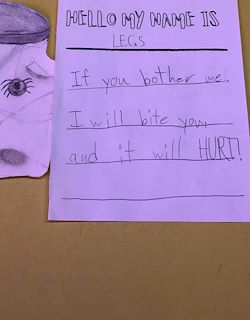 HELLO MY NAME IS
LEGS
If you bother me,
I will bite you,
and it will HURT!